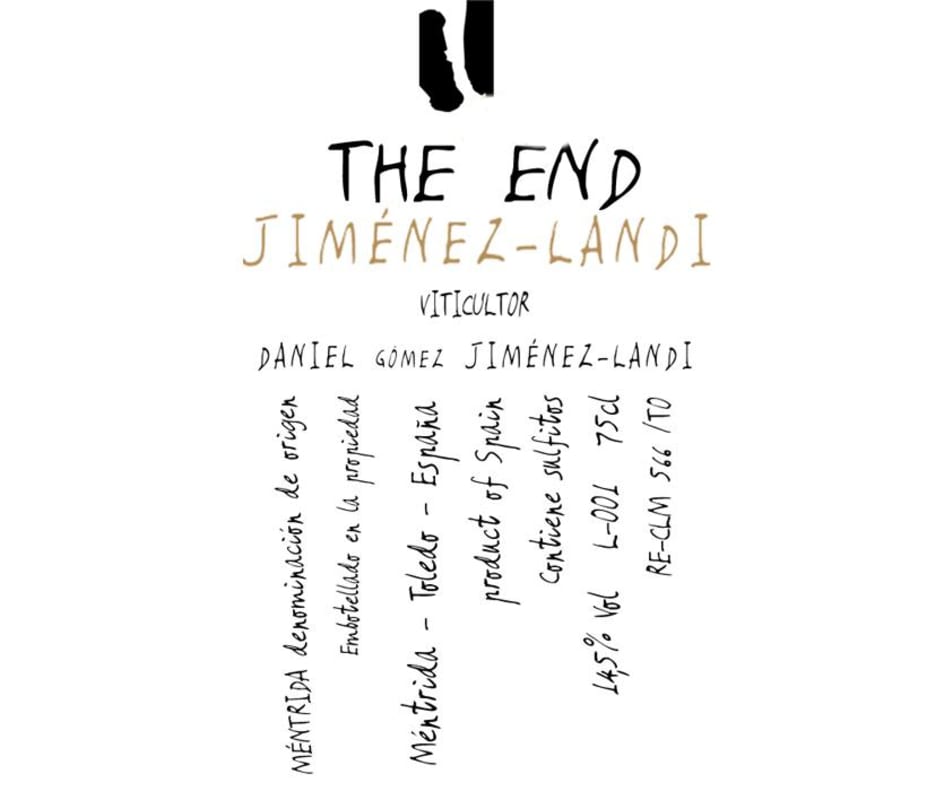 THE END
JIMÉNEZ-LANDI
VITICULTOR
DANIEL GÓMEZ JIMÉNEZ-LANDI
MÉNTRIDA denominación de origen
Embotellado en la propiedad
Méntrida - Toledo - España
product of Spain
Contiene sulfitos
14,5% Vol L-001 75cl
RE-CLM 566 /TO